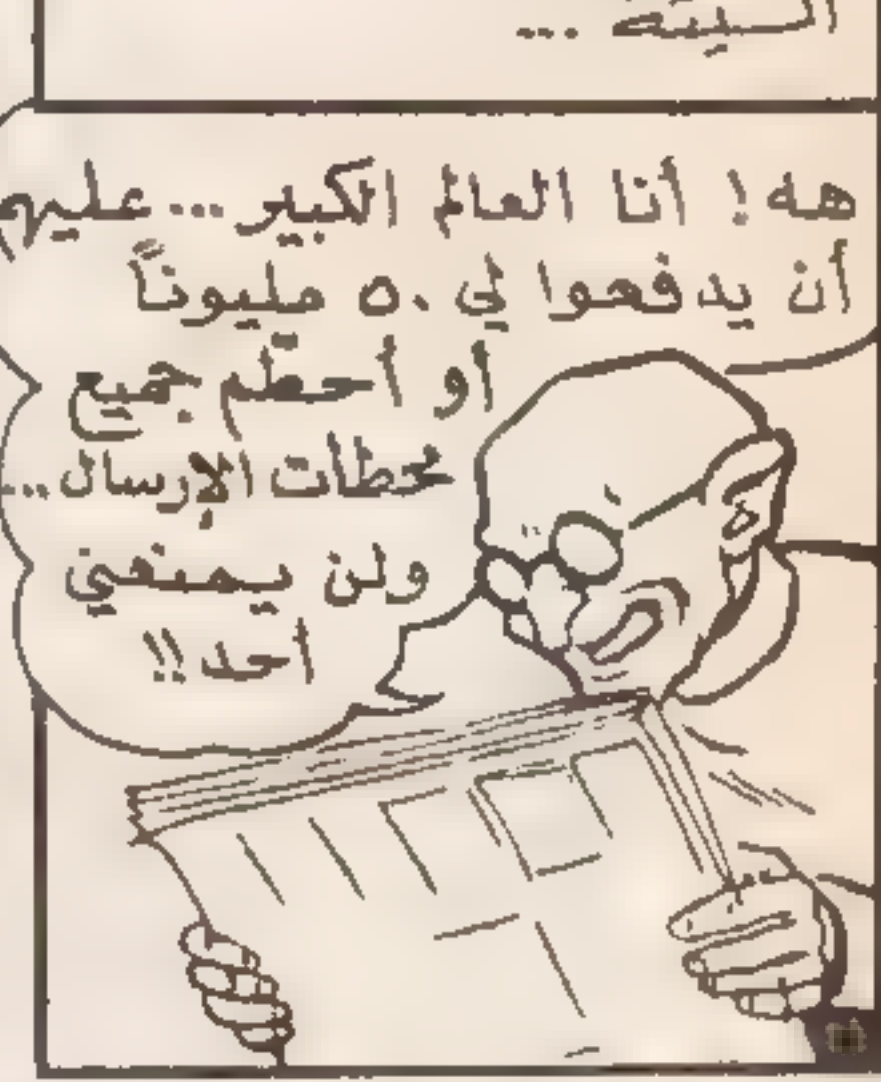 السيئة ...
هه! أنا العالم الكبير... عليهم
أن يدفعوا لي ٥٠ مليوناً
أو أحطّم جميع
محطات الإرسال...
ولن يمنعني
أحد!!